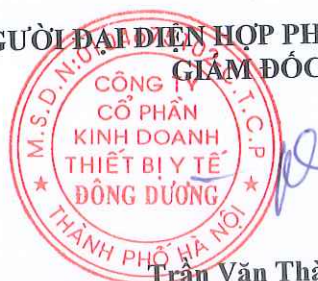 GƯỜI ĐẠI ĐIỆN HỢP PH
GIÁM ĐỐC
M.S.D.N:
C.T.C.P
CÔNG TY
CỔ PHẦN
KINH DOANH
THIẾT BỊ Y TẾ
ĐÔNG DƯƠNG
THÀNH PHỐ HÀ NỘI
Trần Văn Thà